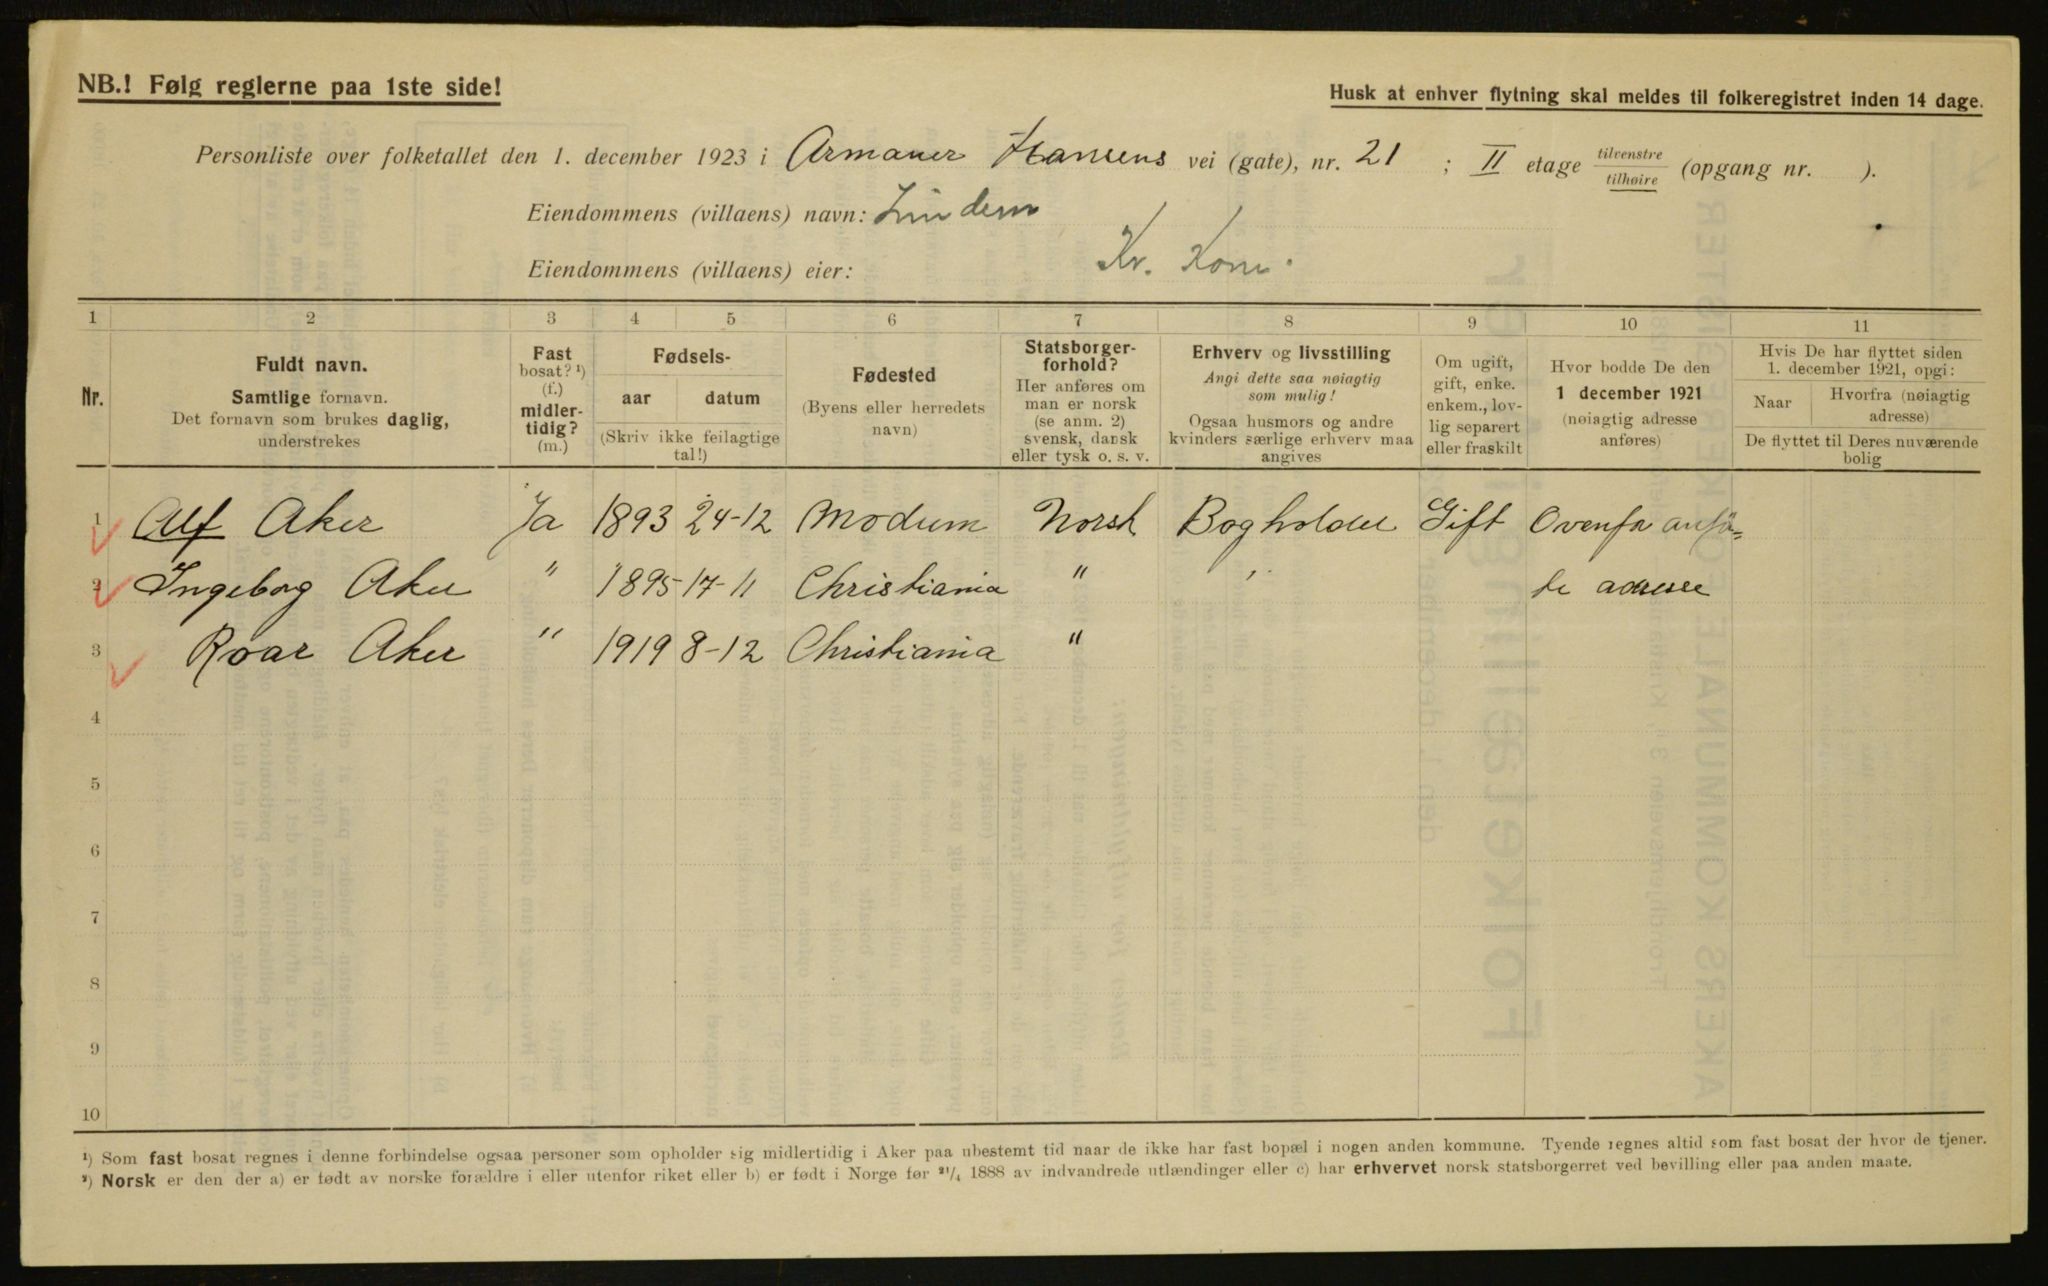 NB.! Følg reglerne paa 1ste side!
Husk at enhver flytning skal meldes til folkeregistret inden 14 dage.
Personliste over folketallet den 1. december 1923 i Armauer Hansens vei (gate), nr. 21 ; II etage tilvenstre tilhøire (opgang nr. ).
Eiendommens (villaens) navn: Lindern
Eiendommens (villaens) eier: Kr. Kom.
1 2 3 4 5 6 7 8 9 10 11
Nr.
Fuldt navn.
Samtlige fornavn.
Det fornavn som brukes daglig,
understrekes
Fast
bosat? ¹)
(f.)
midler-
tidig?
(m.)
Fødsels-
aar datum
(Skriv ikke feilagtige
tal!)
Fødested
(Byens eller herredets
navn)
Statsborger-
forhold?
Her anføres om
man er norsk
(se anm. 2)
svensk, dansk
eller tysk o. s. v.
Erhverv og livsstilling
Angi dette saa nøiagtig
som mulig!
Ogsaa husmors og andre
kvinders særlige erhverv maa
angives
Om ugift,
gift, enke.
enkem., lov-
lig separert
eller fraskilt
Hvor bodde De den
1 december 1921
(nøiagtig adresse
anføres)
Hvis De har flyttet siden
1. december 1921, opgi:
Naar
Hvorfra (nøiagtig
adresse)
De flyttet til Deres nuværende
bolig
1 Alf Aker Ja 1893 24-12 Modum Norsk Bogholder Gift Ovenfor anfør-
2 Ingeborg Aker " 1895 17-11 Christiania " " te adresse
3 Roar Aker " 1919 8-12 Christiania "
4
5
6
7
8
9
10
¹) Som fast bosat regnes i denne forbindelse ogsaa personer som opholder sig midlertidig i Aker paa ubestemt tid naar de ikke har fast bopæl i nogen anden kommune. Tyende regnes altid som fast bosat der hvor de tjener.
²) Norsk er den der a) er født av norske forældre i eller utenfor riket eller b) er født i Norge før ²¹/₄ 1888 av indvandrede utlændinger eller c) har erhvervet norsk statsborgerret ved bevilling eller paa anden maate.